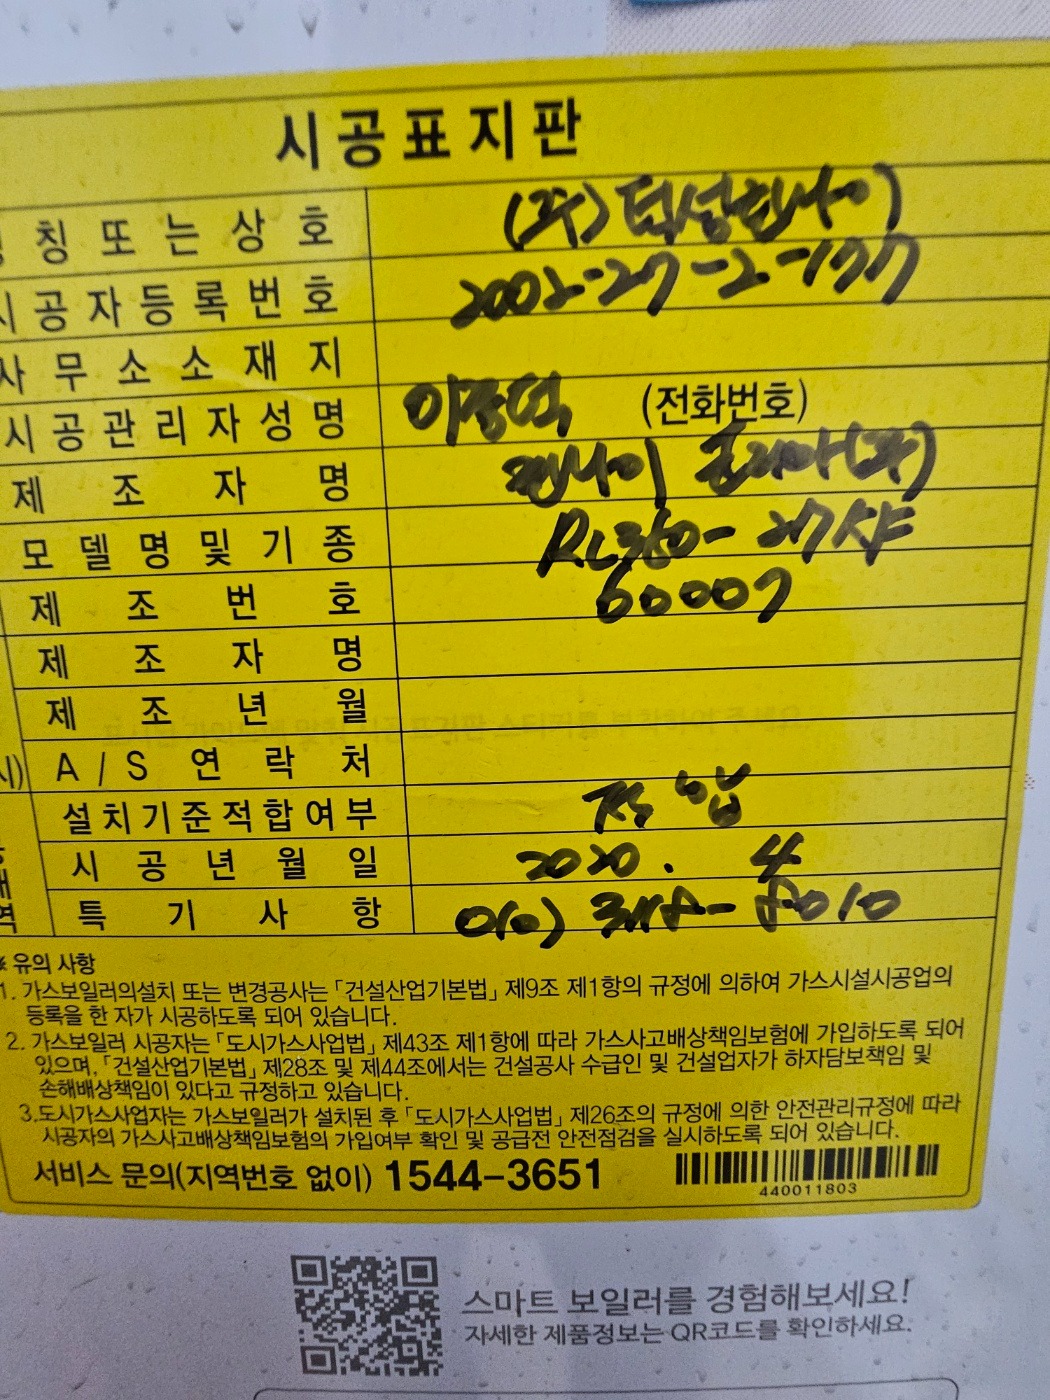 시공표지판
칭 또는 상호 (주)
시공자등록번호 2002-27-2-177
사무소소재지
시공관리자성명 (전화번호)
제조자명 (주)
모델명및기종
제조번호 60007
제조자명
제조년월
A/S 연락처
설치기준적합여부 적합
시공년월일 2020. 4
특기사항
※ 유의 사항
1. 가스보일러의설치 또는 변경공사는 「건설산업기본법」 제9조 제1항의 규정에 의하여 가스시설시공업의
등록을 한 자가 시공하도록 되어 있습니다.
2. 가스보일러 시공자는 「도시가스사업법」 제43조 제1항에 따라 가스사고배상책임보험에 가입하도록 되어
있으며, 「건설산업기본법」 제28조 및 제44조에서는 건설공사 수급인 및 건설업자가 하자담보책임 및
손해배상책임이 있다고 규정하고 있습니다.
3.도시가스사업자는 가스보일러가 설치된 후 「도시가스사업법」 제26조의 규정에 의한 안전관리규정에 따라
시공자의 가스사고배상책임보험의 가입여부 확인 및 공급전 안전점검을 실시하도록 되어 있습니다.
서비스 문의(지역번호 없이) 1544-3651
440011803
스마트 보일러를 경험해보세요!
자세한 제품정보는 QR코드를 확인하세요.